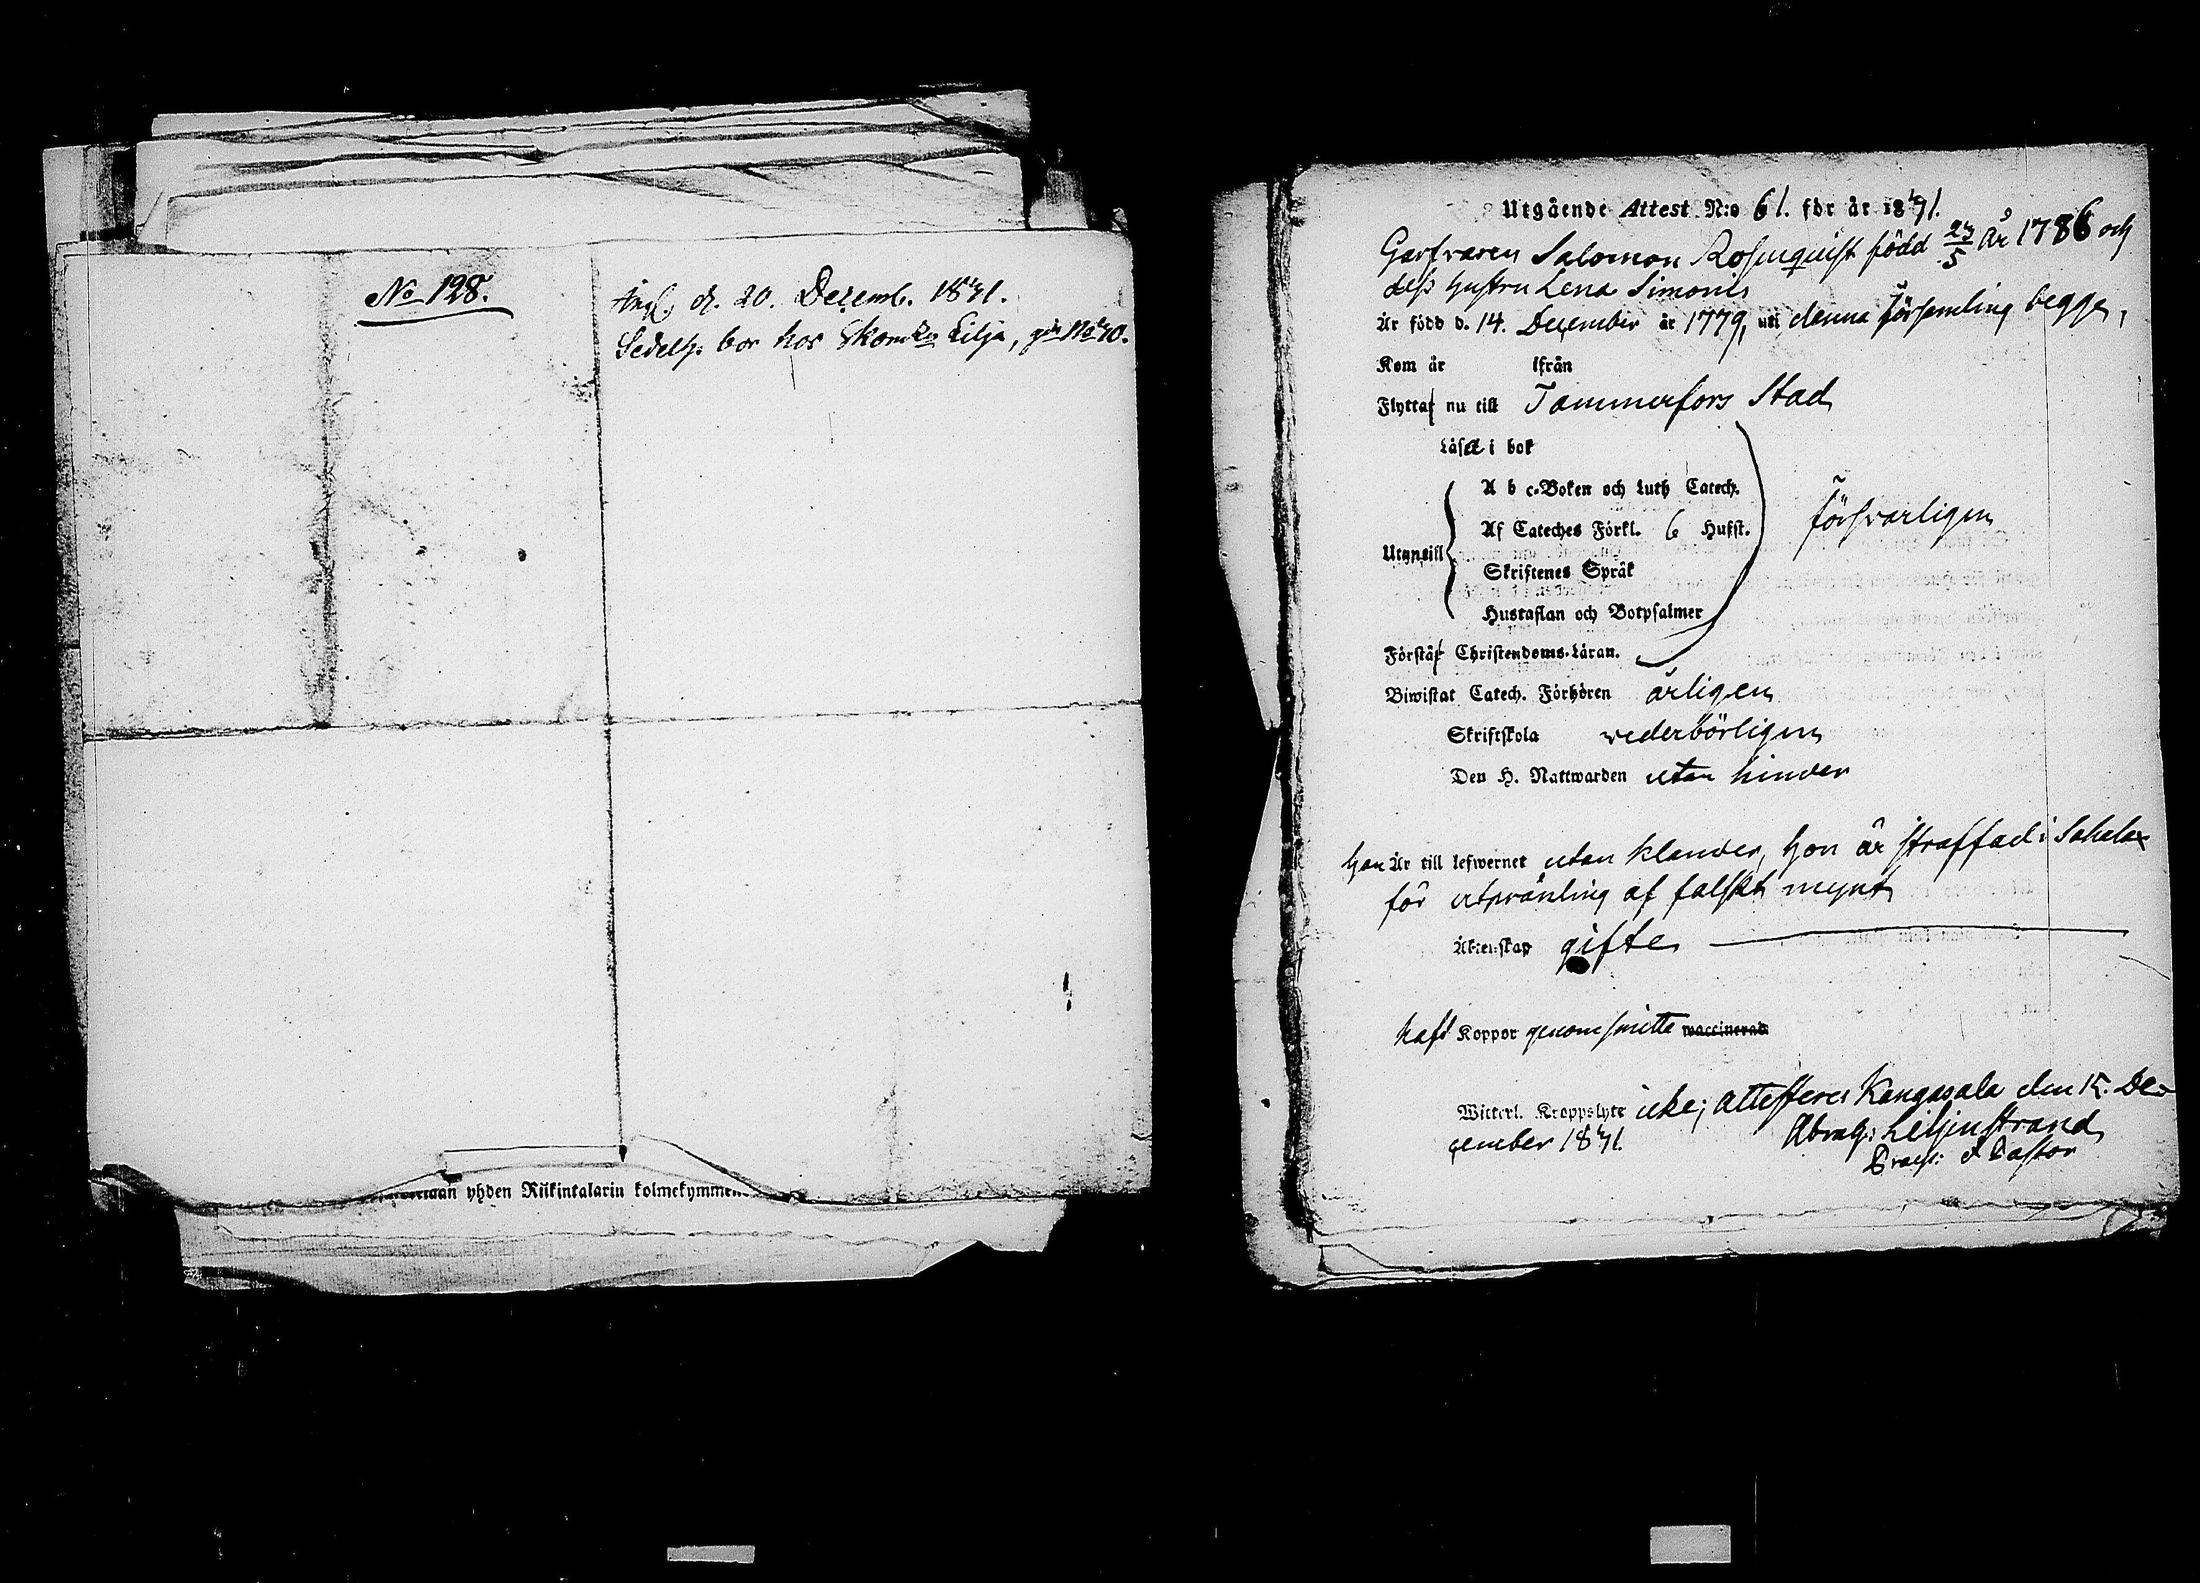 No 128.
d. 20. Decemb. 1841.
bor hos Lilja, No 40.
yhden Riikintalarin kolmekymmen
Utgående Attest N:o 61. för år 1841.
Garfvaren Salomon Rosenquist född 23/5 år 1786 och
dess hustru Lena Simonis
Är född d. 14. December år 1779, uti denna församling begge,
Kom år ifrån
Flytta nu till Tammerfors Stad
Läse i bok
A b c-Boken och Luth Catech.
Af Cateches Förkl. 6 Husst.
försvarligen
Utantill
Skriftenes Språk
Hustaflan och Botpsalmer
Förstå Christendoms-Läran.
Biwistat Catech. Förhören årligen
Skriftskola vederbörligen
Den H. Nattwarden utan hinder
han Är till lefwernet utan klander, hon är straffad i Sahalax
för utprånling af falskt mynt
Äktenskap gifte
haft Koppor waccinerad
Witterl. Kroppslyte icke; attesteres Kangasala den 15. De-
cember 1841. Abrah: Liljenstrand
Praep: & Pastor